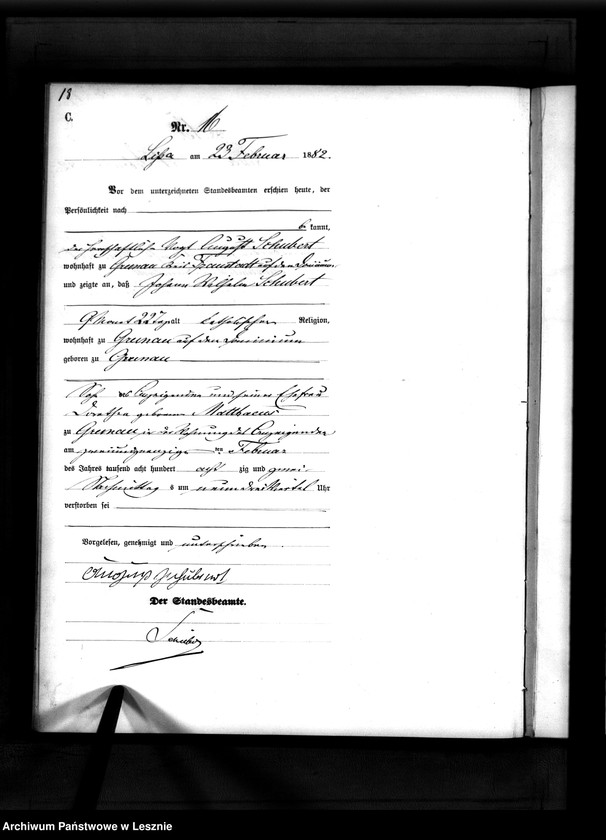 18
C.
Nr. 16
Lissa am 23 Februar 1882.
Vor dem unterzeichneten Standesbeamten erschien heute, der
Persönlichkeit nach
be kannt,
der herrschaftliche Vogt August Schubert
wohnhaft zu Grunau Kreis Fraustadt auf dem Dominium
und zeigte an, daß Johann Wilhelm Schubert
9 Monat 22 Tage alt katholischer Religion,
wohnhaft zu Grunau auf dem Dominium
geboren zu Grunau
Sohn des Anzeigenden und seiner Ehefrau
Dorothea geborenen Matthaeus
zu Grunau in der Wohnung des Anzeigenden
am zweiundzwanzigsten Februar
des Jahres tausend acht hundert acht zig und zwei
Nachmittag s um neun drei Viertel Uhr
verstorben sei
Vorgelesen, genehmigt und unterschrieben.
August Schubert
Der Standesbeamte.
Archiwum Państwowe w Lesznie